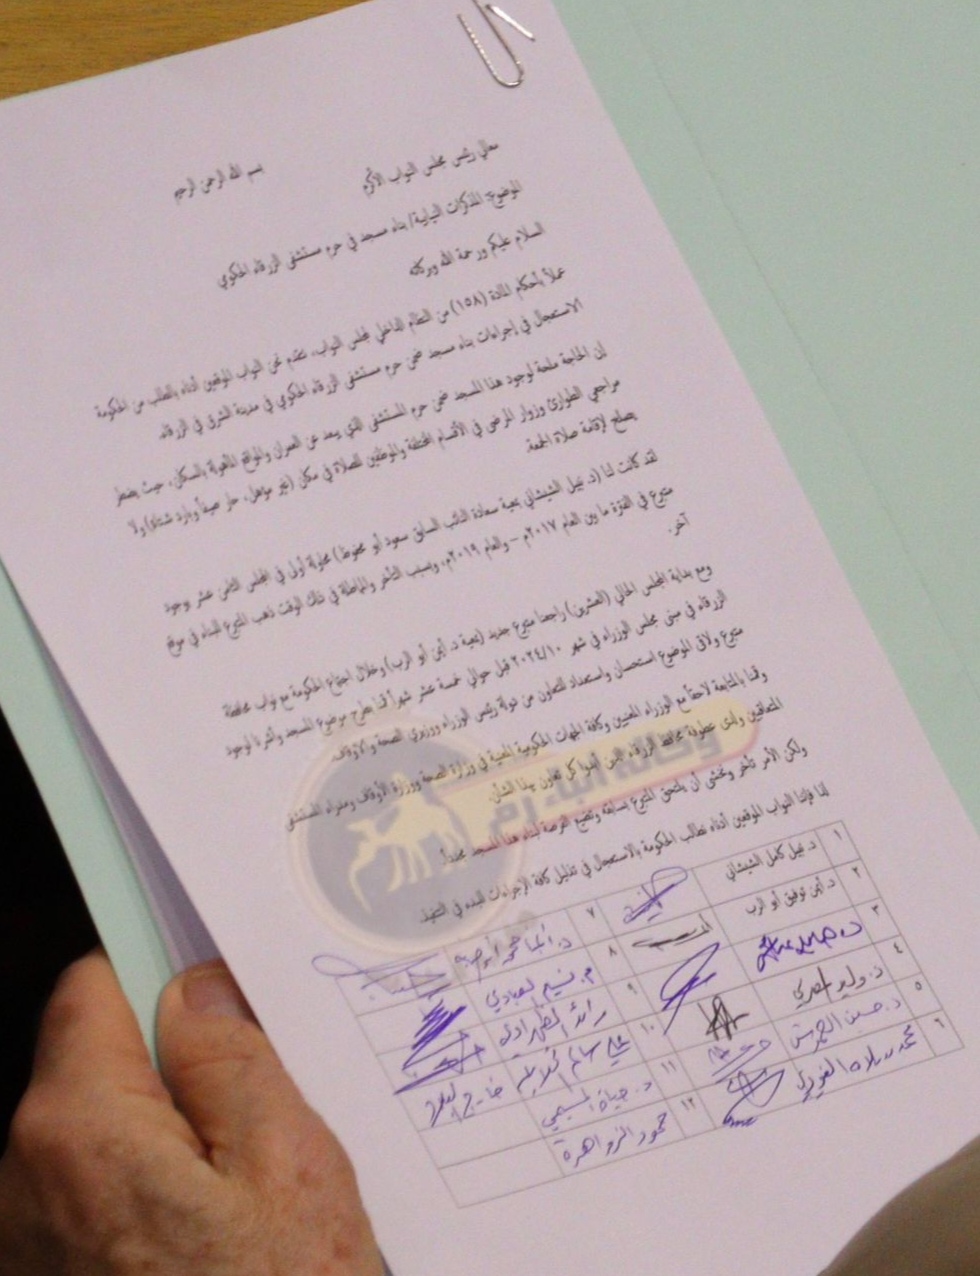 بسم الله الرحمن الرحيم
معالي رئيس مجلس النواب الأكرم
الموضوع: المذكرات النيابية/ بناء مسجد في حرم مستشفى الزرقاء الحكومي
السلام عليكم ورحمة الله وبركاته
عملاً بأحكام المادة (١٥٨) من النظام الداخلي لمجلس النواب، نتقدم نحن النواب الموقعين أدناه بالطلب من الحكومة
الاستعجال في إجراءات بناء مسجد ضمن حرم مستشفى الزرقاء الحكوي في مدينة الشرق في الزرقاء.
إن الحاجة ملحة لوجود هذا المسجد ضمن حرم المستشفى الذي يبعد عن العمران والمواقع المأهولة بالسكان، حيث يضطر
مراجعي الطوارئ وزوار المرضى في الأقسام المختلفة والموظفين للصلاة في مكان (غير مؤهل، حار صيفاً وبارد شتاءً) ولا
يصلح لإقامة صلاة الجمعة.
لقد كانت لنا (د. نبيل الشيشاني بمعية سعادة النائب السابق سعود أبو محفوظ) محاولة أولى في المجلس الثامن عشر بوجود
متبرع في الفترة ما بين العام ٢٠١٧م – والعام ٢٠١٩م، وبسبب التأخر والمماطلة في ذلك الوقت ذهب المتبرع للبناء في موقع
آخر.
ومع بداية المجلس الحالي (العشرين) راجعنا متبرع جديد (بمعية د. أيمن أبو الرب) وخلال اجتماع الحكومة مع نواب محافظة
الزرقاء في مبنى مجلس الوزراء في شهر ٢٠٢٤/١٠ قبل حوالي خمسة عشر شهراً قمنا بطرح موضوع المسجد وأشرنا لوجود
متبرع ولاقى الموضوع استحسان واستعداد للتعاون من دولة رئيس الوزراء ووزيري الصحة والأوقاف.
وقمنا بالمتابعة لاحقاً مع الوزراء المعنيين وكافة الجهات الحكومية المعنية في وزارة الصحة ووزارة الأوقاف ومدراء المستشفى
المتعاقبين ولدى عطوفة محافظ الزرقاء الذين أبدوا كل تعاون بهذا الشأن.
ولكن الأمر تأخر ونخشى أن يلتحق المتبرع بسابقه وتضيع الفرصة لبناء هذا المسجد مجدداً.
لذا فإننا النواب الموقعين أدناه نطالب الحكومة بالاستعجال في تذليل كافة الإجراءات للبدء في التنفيذ.
١ د. نبيل كامل الشيشاني ٧
٢ د. أيمن توفيق أبو الرب ٨ م. نسيم العبادي
٣ ٩ رائد الظهراوي
٤ د. وليد المصري ١٠ علي سالم خارج البلاد
٥ د. حسين العموش ١١ د. حياة المسيمي
٦ محمد سلامة الغويري ١٢ محمود الزواهرة
وكالة أنباء رم